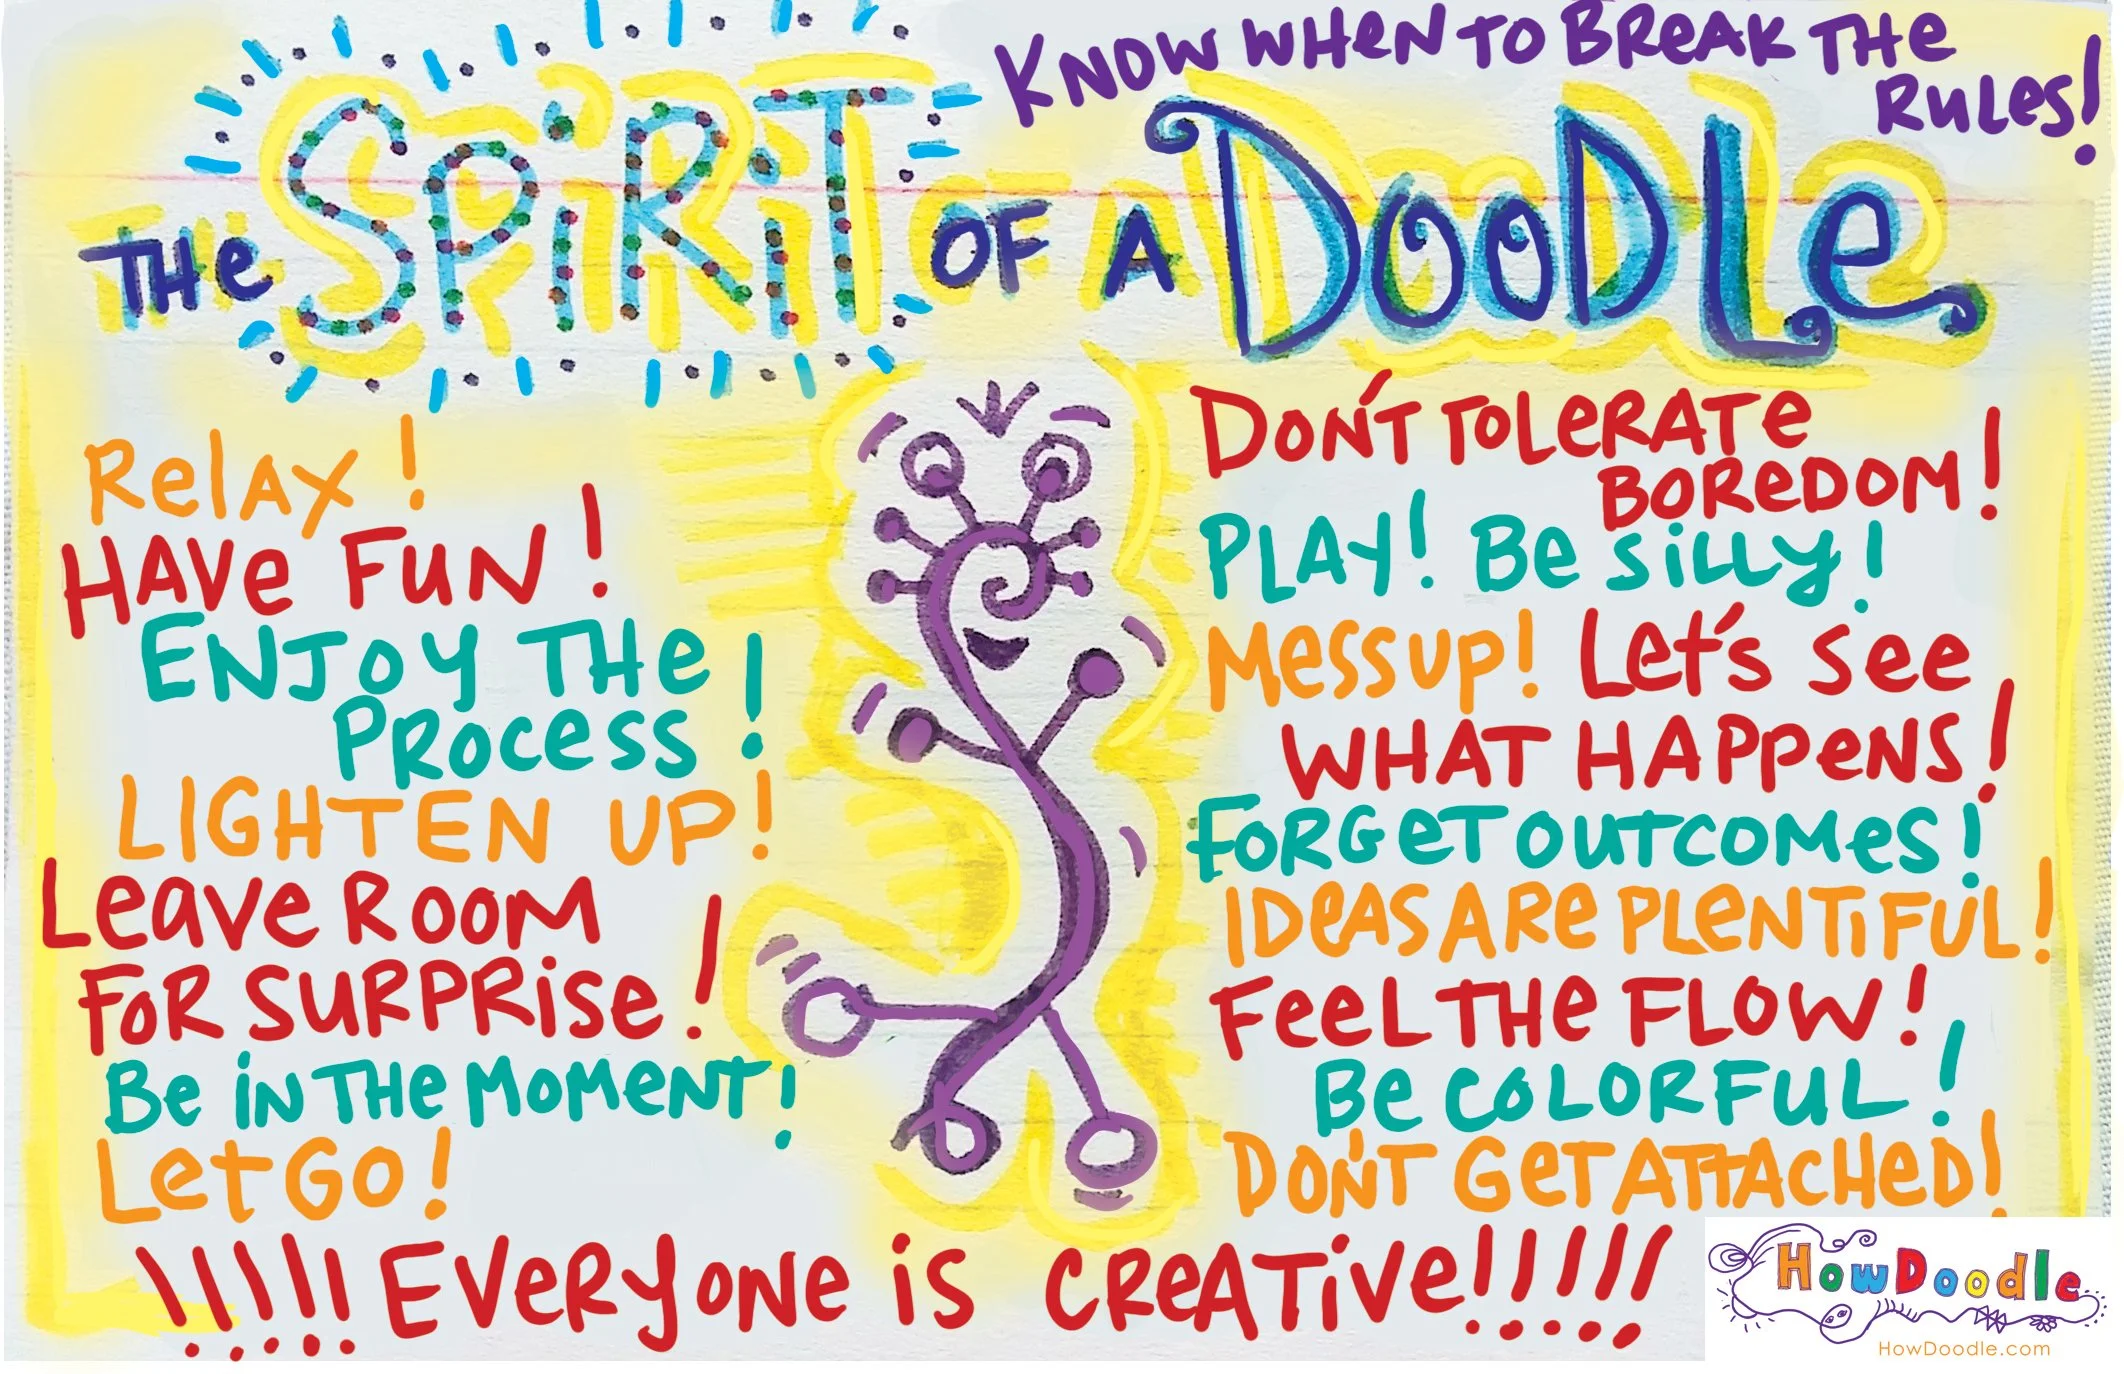 Know when to break the
rules!
The Spirit of a Doodle
Relax!
Have fun!
Enjoy the
process!
Lighten up!
Leave room
for surprise!
Be in the moment!
Let go!
Don't tolerate
boredom!
Play! Be silly!
Mess up! Let's see
what happens!
Forget outcomes!
Ideas are plentiful!
Feel the flow!
Be colorful!
Don't get attached!
!!!!! Everyone is creative!!!!!
HowDoodle
HowDoodle.com